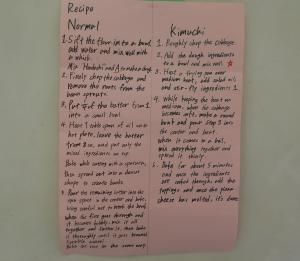 Recipe
Normal
1. Sift the flour into a bowl,
add water and mix well with
a whisk.
Mix
2. Finely chop the cabbage and
remove the roots from the
bean sprouts.
3. Put of the batter from 1
into a small bowl.
4. Heat 1 table spoon of oil on a
hot plate, leave the batter
from 3 on, and put only the
mixed ingredients on top
Bake while cutting with a spatula,
then spread out into a donut
shape to create banks
5. Pour the remaining batter into the
open space in the center and bake,
being careful not to break the bank,
when the fire goes through and
it becomes bubbly, mix it all
together and flatten it, then bake
it thoroughly until it goes browned
Kimuchi
1. Roughly chop the cabbage
2. Add the dough ingredients
to a bowl and mix well
3. Heat a frying pan over
medium heat, add salad oil
and stir-fry ingredients 1
4. While keeping the heat on
medium, when the cabbage
becomes soft, make a round
bank and pour step 2 into
the center and heat.
when it comes to a boil,
mix everything together and
spread it thinly.
5. Bake for about 5 minutes
and once the ingredients
are cooked through, add the
toppings and once the pizza
cheese has melted, it's done